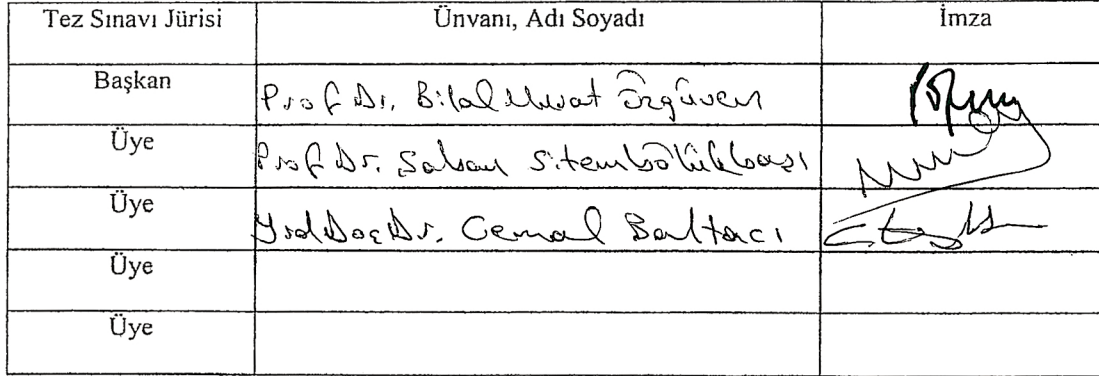 Tez Sınavı Jürisi Ünvanı, Adı Soyadı İmza
Başkan Prof Dr. Bilal Murat Özgüven
Üye Prof Dr. Şaban Sitembölükbaşı
Üye Yrd Doç Dr. Cemal Baltacı
Üye
Üye